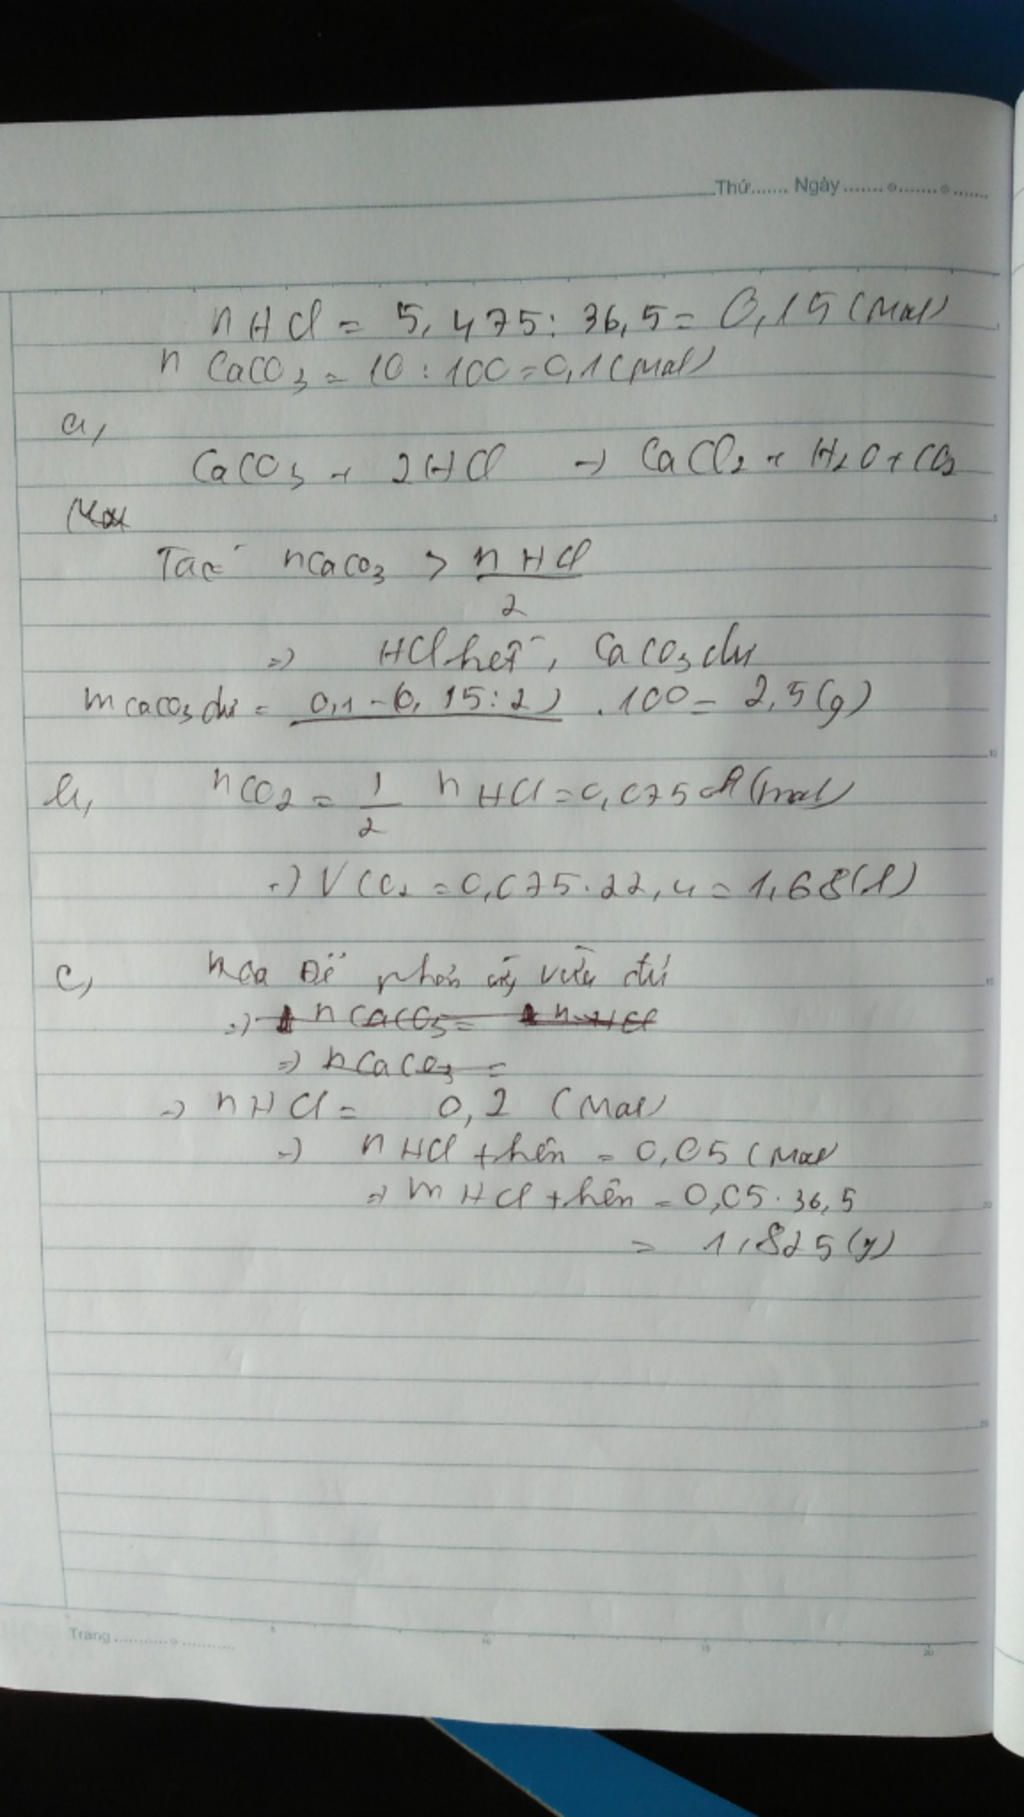 Thứ....... Ngày.......o.......o.......
nHCl = 5,475 : 36,5 = 0,15 (Mol)
n CaCO3 = 10 : 100 = 0,1 (mol)
a,
CaCO3 + 2HCl → CaCl2 + H2O + CO2
Ta có nCaCO3 > nHCl
2
=> HCl hết, CaCO3 dư
mCaCO3 dư = 0,1 - (0,15 : 2) . 100 = 2,5 (g)
b, nCO2 = 1/2 nHCl = 0,075 (mol)
=> VCO2 = 0,075 . 22,4 = 1,68 (l)
c, Để phản ứng vừa đủ
=> nCaCO3 = nHCl
=> nCaCO3 =
=> nHCl = 0,2 (Mol)
=> nHCl thên = 0,05 (Mol
=> mHCl thên = 0,05 . 36,5
= 1,825 (g)
Trang...........o...........
5 10 15 20